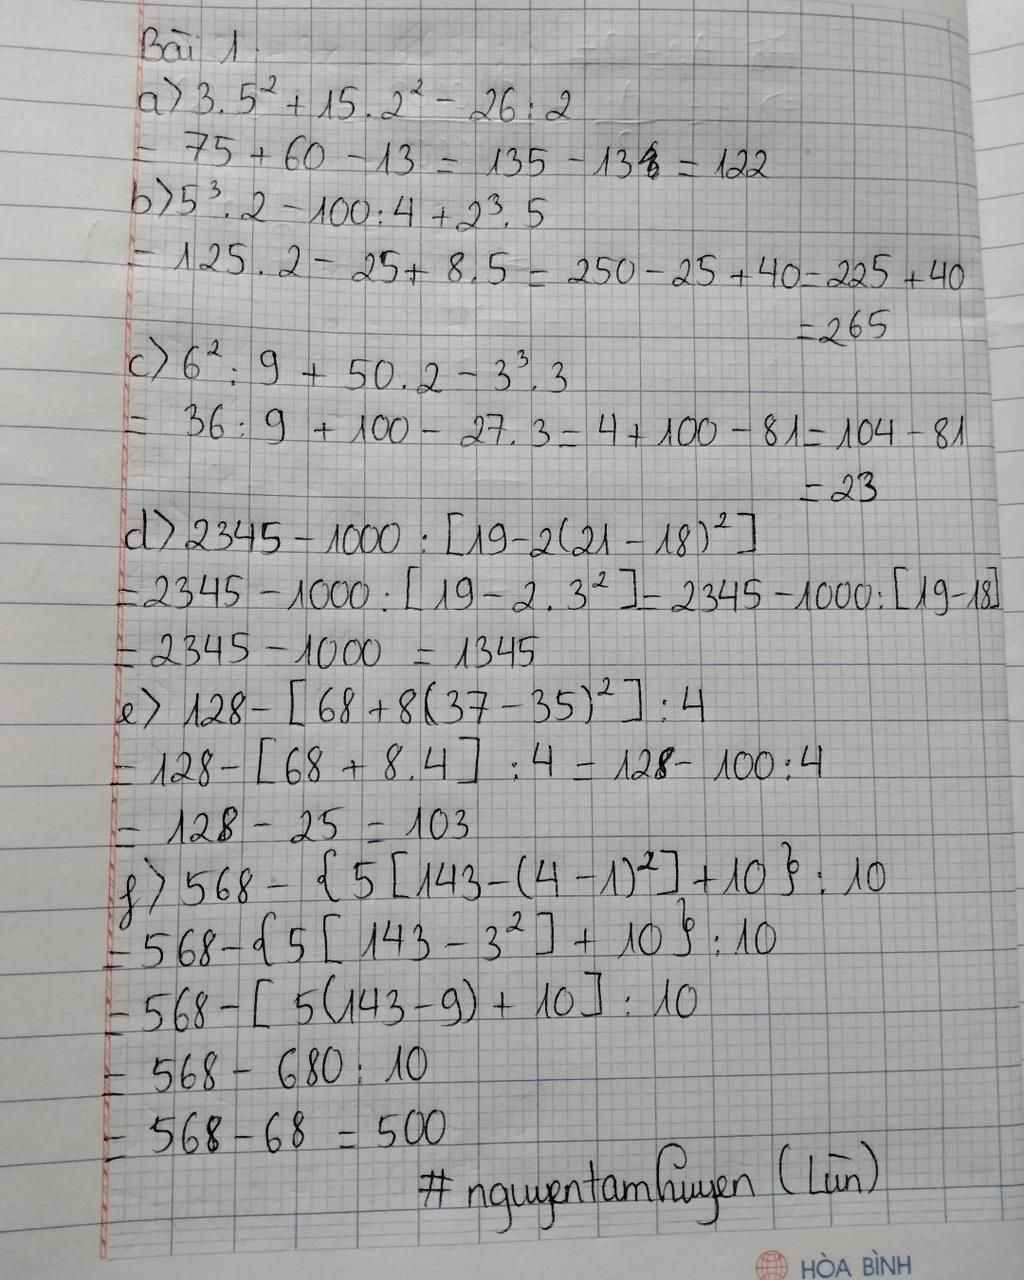 Bài 1:
a) 3.5² + 15.2² - 26:2
= 75 + 60 - 13 = 135 - 13 = 122
b) 5³.2 - 100:4 + 2³.5
= 125.2 - 25 + 8.5 = 250 - 25 + 40 = 225 + 40
= 265
c) 6²: 9 + 50.2 - 3³.3
= 36:9 + 100 - 27.3 = 4 + 100 - 81 = 104 - 81
= 23
d) 2345 - 1000 : [19 - 2(21 - 18)²]
= 2345 - 1000 : [19 - 2.3²] = 2345 - 1000:[19-18]
= 2345 - 1000 = 1345
e) 128 - [68 + 8(37 - 35)²] : 4
= 128 - [68 + 8.4] : 4 = 128 - 100:4
= 128 - 25 = 103
f) 568 - {5[143 - (4 - 1)²] + 10} : 10
= 568 - {5[143 - 3²] + 10} : 10
= 568 - [5(143 - 9) + 10] : 10
= 568 - 680 : 10
= 568 - 68 = 500
# nguyentamhuyen (Lùn)
HÒA BÌNH